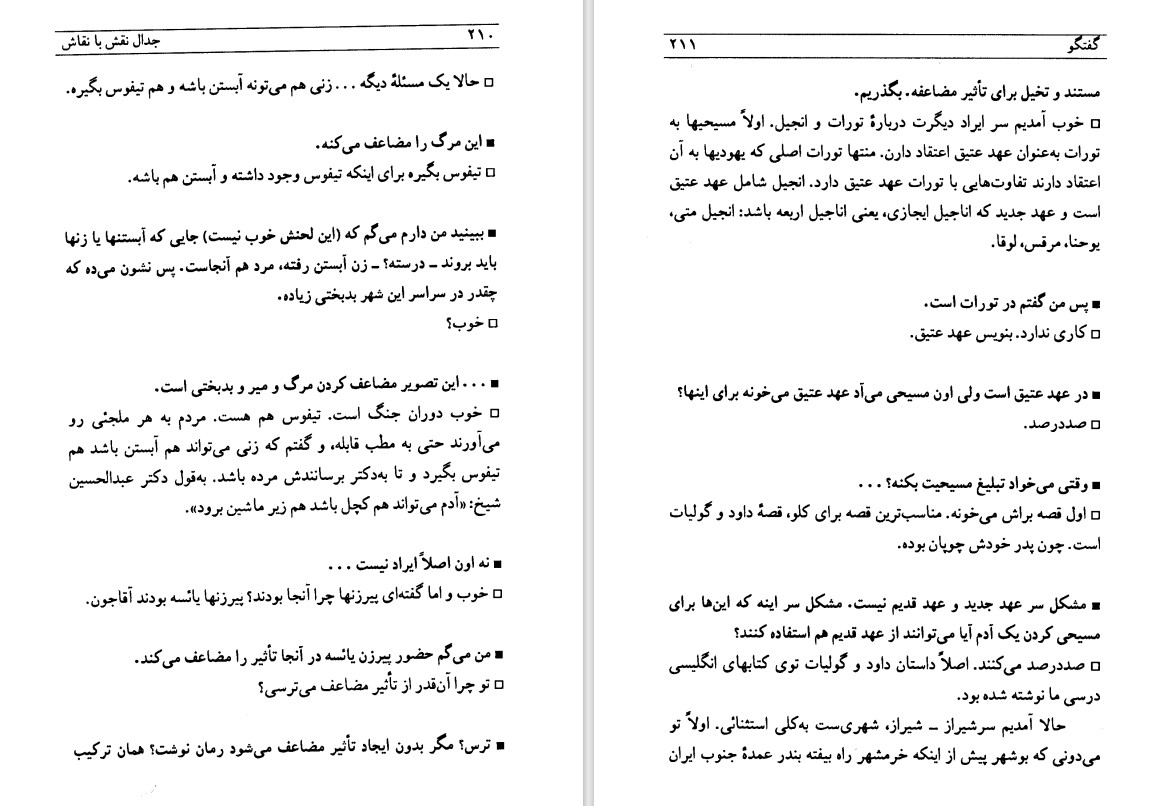 ۲۱۰
جدال نقش با نقاش
□ حالا یک مسئلهٔ دیگه ... زنی هم می‌تونه آبستن باشه و هم تیفوس بگیره.
■ این مرگ را مضاعف می‌کنه.
□ تیفوس بگیره برای اینکه تیفوس وجود داشته و آبستن هم باشه.
■ ببینید من دارم می‌گم که (این لحنش خوب نیست) جایی که آبستنها یا زنها
باید بروند ـ درسته؟ ـ زن آبستن رفته، مرد هم آنجاست. پس نشون می‌ده که
چقدر در سراسر این شهر بدبختی زیاده.
□ خوب؟
■ ... این تصویر مضاعف کردن مرگ و میر و بدبختی است.
□ خوب دوران جنگ است. تیفوس هم هست. مردم به هر ملجئی رو
می‌آورند حتی به مطب قابله، و گفتم که زنی می‌تواند هم آبستن باشد هم
تیفوس بگیرد و تا به‌دکتر برسانندش مرده باشد. به‌قول دکتر عبدالحسین
شیخ: «آدم می‌تواند هم کچل باشد هم زیر ماشین برود».
■ نه اون اصلاً ایراد نیست ...
□ خوب و اما گفته‌ای پیرزنها چرا آنجا بودند؟ پیرزنها یائسه بودند آقاجون.
■ من می‌گم حضور پیرزن یائسه در آنجا تأثیر را مضاعف می‌کند.
□ تو چرا آن‌قدر از تأثیر مضاعف می‌ترسی؟
■ ترس؟ مگر بدون ایجاد تأثیر مضاعف می‌شود رمان نوشت؟ همان ترکیب
گفتگو
۲۱۱
مستند و تخیل برای تأثیر مضاعفه. بگذریم.
□ خوب آمدیم سر ایراد دیگرت دربارهٔ تورات و انجیل. اولاً مسیحیها به
تورات به‌عنوان عهد عتیق اعتقاد دارن. منتها تورات اصلی که یهودیها به آن
اعتقاد دارند تفاوت‌هایی با تورات عهد عتیق دارد. انجیل شامل عهد عتیق
است و عهد جدید که اناجیل ایجازی، یعنی اناجیل اربعه باشد: انجیل متی،
یوحنا، مرقس، لوقا.
■ پس من گفتم در تورات است.
□ کاری ندارد. بنویس عهد عتیق.
■ در عهد عتیق است ولی اون مسیحی می‌آد عهد عتیق می‌خونه برای اینها؟
□ صددرصد.
■ وقتی می‌خواد تبلیغ مسیحیت بکنه؟ ...
□ اول قصه براش می‌خونه. مناسب‌ترین قصه برای کلو، قصهٔ داود و گولیات
است. چون پدر خودش چوپان بوده.
■ مشکل سر عهد جدید و عهد قدیم نیست. مشکل سر اینه که این‌ها برای
مسیحی کردن یک آدم آیا می‌توانند از عهد قدیم هم استفاده کنند؟
□ صددرصد می‌کنند. اصلاً داستان داود و گولیات توی کتابهای انگلیسی
درسی ما نوشته شده بود.
حالا آمدیم سرشیراز ـ شیراز، شهری‌ست به‌کلی استثنائی. اولاً تو
می‌دونی که بوشهر پیش از اینکه خرمشهر راه بیفته بندر عمدهٔ جنوب ایران